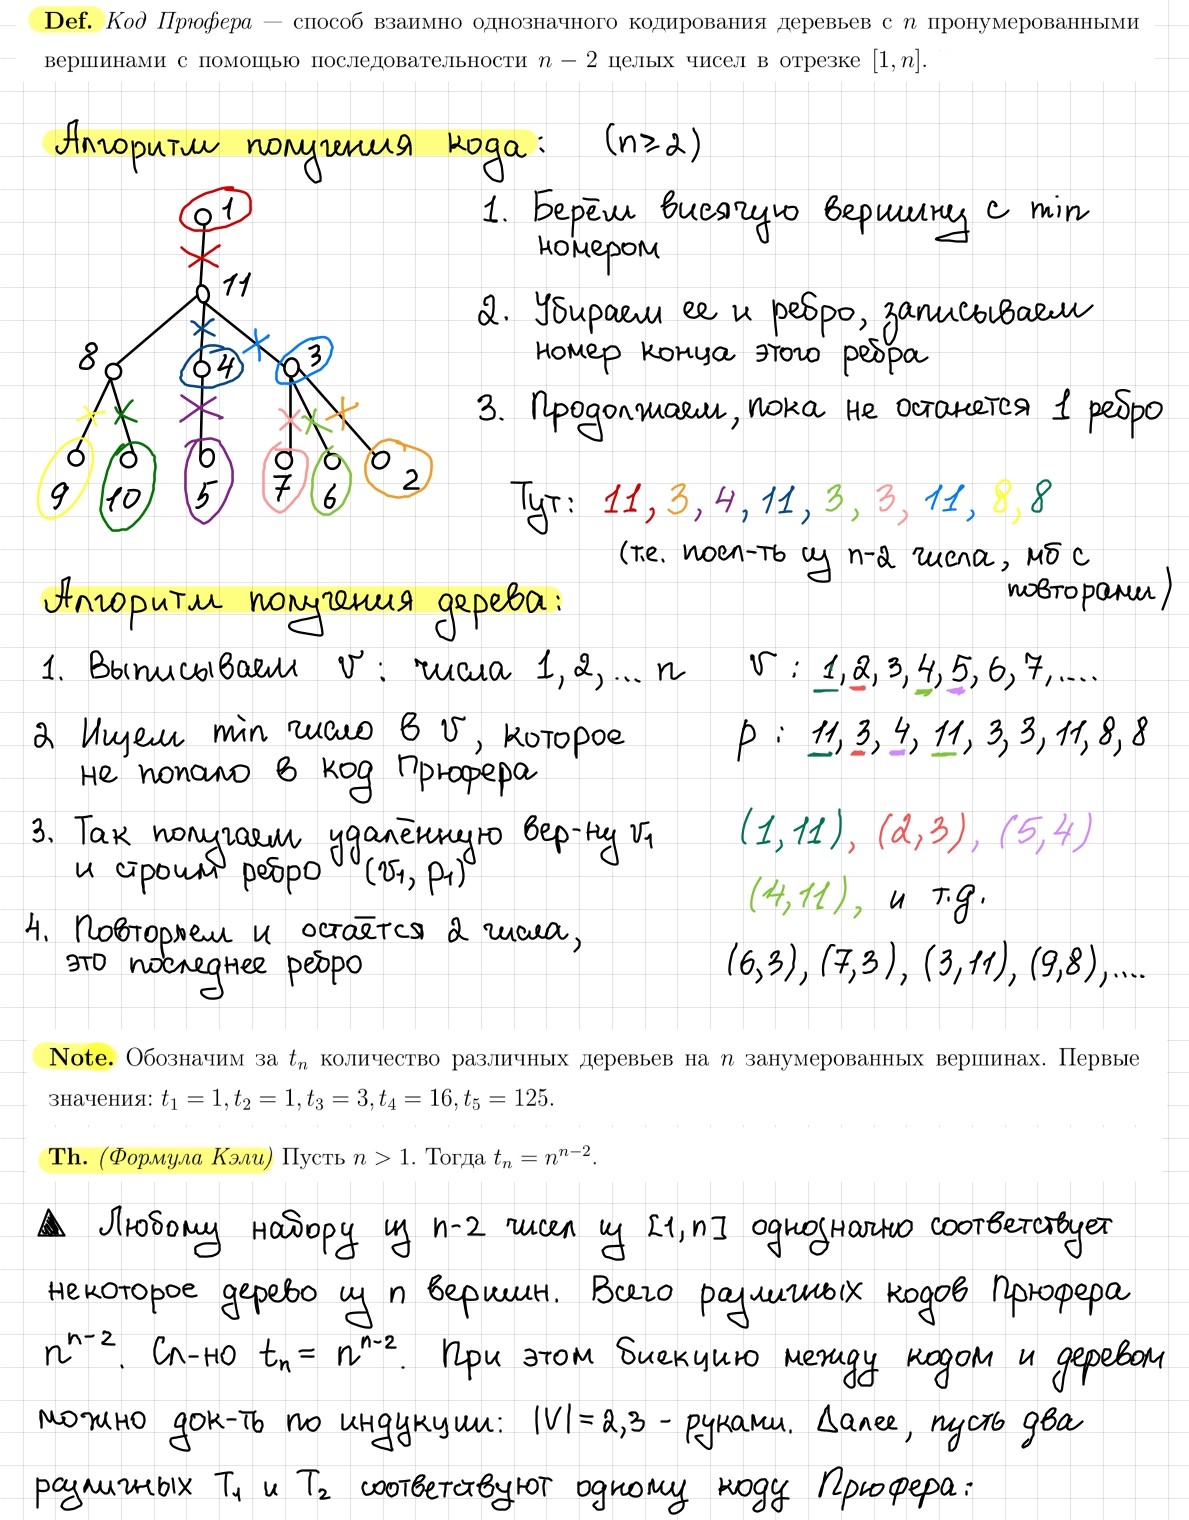 Def. Код Прюфера — способ взаимно однозначного кодирования деревьев с n пронумерованными
вершинами с помощью последовательности n − 2 целых чисел в отрезке [1, n].
Алгоритм получения кода: (n ⩾ 2)
1
11
8
4
3
9
10
5
7
6
2
1. Берём висячую вершину с min
номером
2. Убираем ее и ребро, записываем
номер конца этого ребра
3. Продолжаем, пока не останется 1 ребро
Тут: 11, 3, 4, 11, 3, 3, 11, 8, 8
(т.е. посл-ть из n-2 числа, мб с
повторами)
Алгоритм получения дерева:
1. Выписываем v : числа 1, 2, ... n
v : 1, 2, 3, 4, 5, 6, 7, ....
2 Ищем min число в v, которое
не попало в код Прюфера
p : 11, 3, 4, 11, 3, 3, 11, 8, 8
3. Так получаем удалённую вер-ну v₁
и строим ребро (v₁, p₁)
(1, 11), (2, 3), (5, 4)
(4, 11), и т.д.
4. Повторяем и остаётся 2 числа,
это последнее ребро
(6,3), (7,3), (3,11), (9,8), ....
Note. Обозначим за tₙ количество различных деревьев на n занумерованных вершинах. Первые
значения: t₁ = 1, t₂ = 1, t₃ = 3, t₄ = 16, t₅ = 125.
Th. (Формула Кэли) Пусть n > 1. Тогда tₙ = nⁿ⁻².
Любому набору из n-2 чисел из [1, n] однозначно соответствует
некоторое дерево из n вершин. Всего различных кодов Прюфера
nⁿ⁻². Сл-но tₙ = nⁿ⁻². При этом биекцию между кодом и деревом
можно док-ть по индукции: |V| = 2,3 - руками. Далее, пусть два
различных T₁ и T₂ соответствуют одному коду Прюфера: